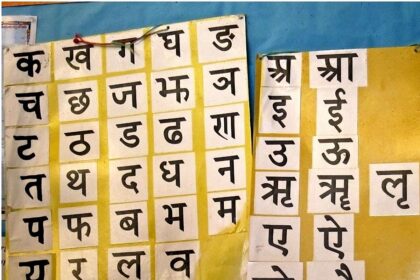 क ख ग घं ङ
च छ ज झ ञ
ट ठ ड ढ ण
त थ द ध न
प फ ब भ म
य र ल व
अ आ
इ ई
उ ऊ
ऋ ॠ लृ
ए ऐ